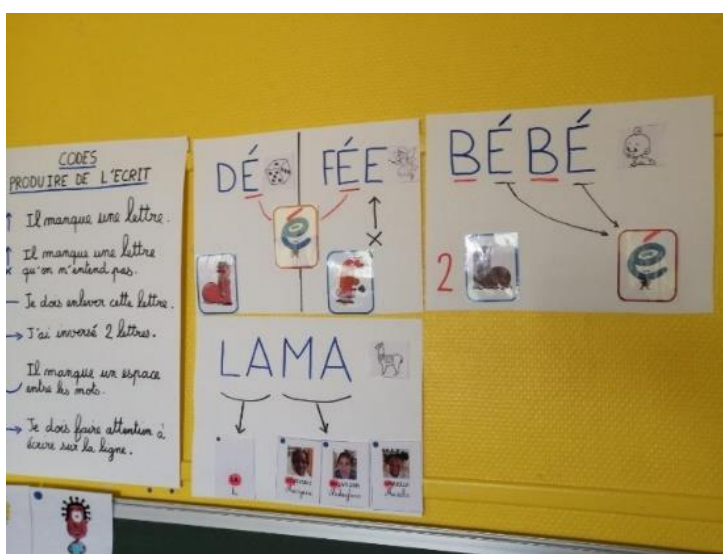 CODES
PRODUIRE DE L'ECRIT
Il manque une lettre.
Il manque une lettre
qu'on n'entend pas.
Je dois enlever cette lettre.
J'ai inversé 2 lettres.
Il manque un espace
entre les mots.
Je dois faire attention à
écrire sur la ligne.
DÉ
FÉE
é
BÉBÉ
2
é
LAMA